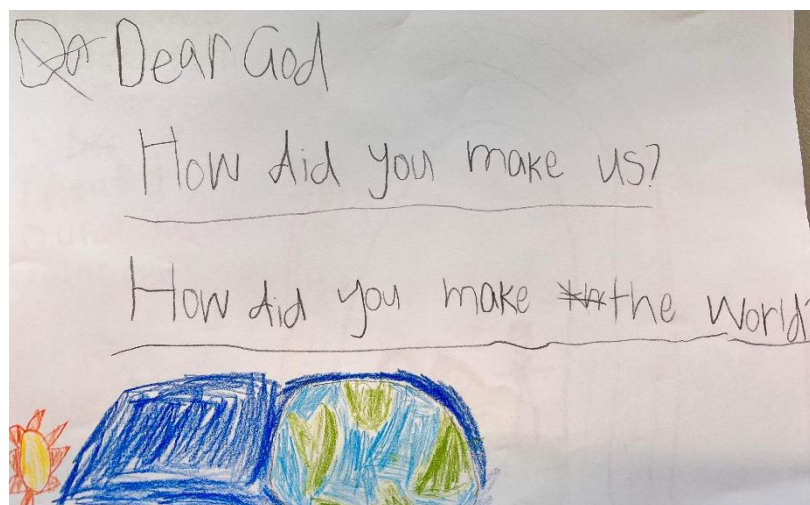 Dear God
How did you make us?
How did you make the world